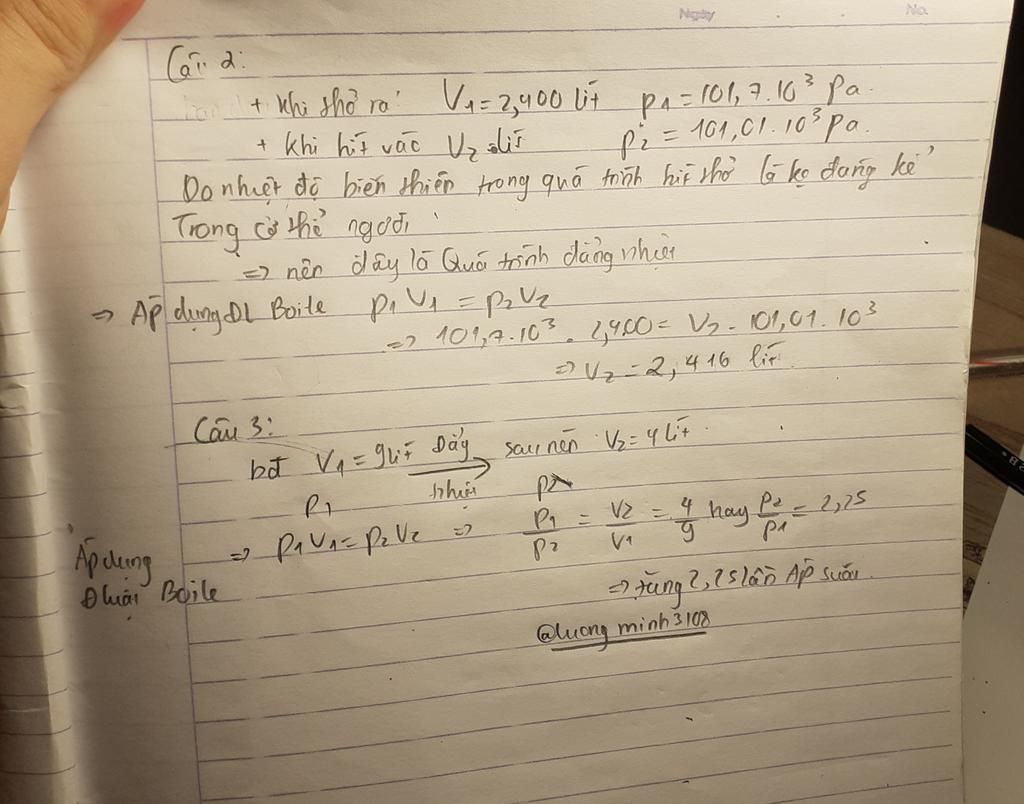 Ngày No.
Câu 2:
+ khi thở ra: V1 = 2,400 lít p1 = 101,7.10³ Pa.
+ khi hít vào V2 = lít p2 = 101,01.10³ Pa.
Do nhiệt độ biến thiên trong quá trình hít thở là ko đáng kể
Trong cơ thể người
=> nên đây là Quá trình đẳng nhiệt
=> Áp dụng ĐL Boile p1V1 = p2V2
=> 101,7.10³ . 2,400 = V2 . 101,01.10³
=> V2 = 2,416 lít.
Câu 3:
bđ V1 = 9 lít Đẳng nhiệt → sau nén V2 = 4 lít.
p1 p2
Áp dụng Đluật Boile => p1V1 = p2V2 => p1/p2 = V2/V1 = 4/9 hay p2/p1 = 2,25
=> tăng 2,25 lần Áp suất.
@luong minh3108